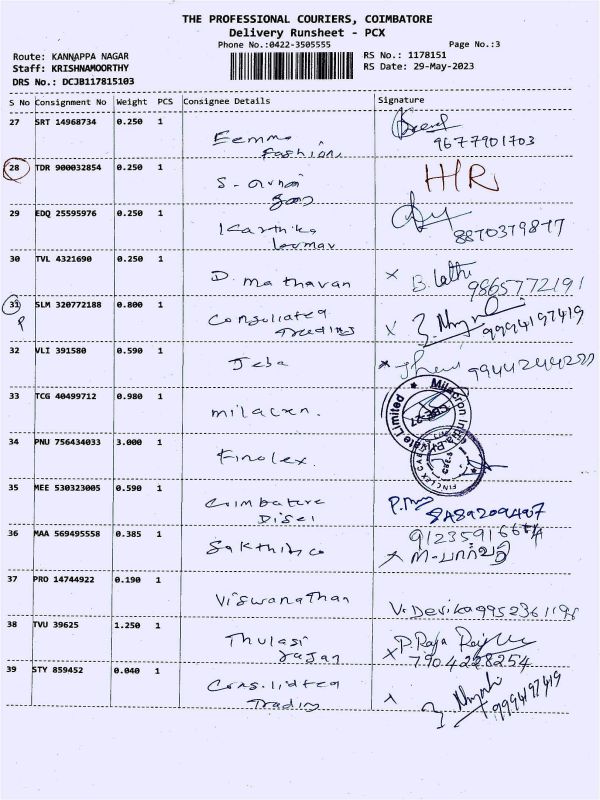 THE PROFESSIONAL COURIERS, COIMBATORE
Delivery Runsheet - PCX
Phone No.:0422-3505555
Page No.:3
Route: KANNAPPA NAGAR
RS No.: 1178151
Staff: KRISHNAMOORTHY
RS Date: 29-May-2023
DRS No.: DCJB117815103
S No Consignment No Weight PCS Consignee Details Signature
27 SRT 14968734 0.250 1
Eemma
Fashion
9677901703
28 TDR 900032854 0.250 1
H/R
29 EDQ 25595976 0.250 1
Karthika
30 TVL 4321690 0.250 1
D. Mathavan
x B. Lathi
9865772191
31 SLM 320772188 0.800 1
P
Consoliated
Treeding
x
9994197419
32 VLI 391580 0.590 1
Jeba
33 TCG 40499712 0.980 1
milacron.
34 PNU 756434033 3.000 1
Finolex.
35 MEE 530323005 0.590 1
Coimbatore
Disel
36 MAA 569495558 0.385 1
37 PRO 14744922 0.190 1
Viswanathan
V. Devika
38 TVU 39625 1.250 1
Thulasi
Rajan
x P. Raja
7904228254
39 STY 859452 0.040 1
Consolidted
Trading
9994197419